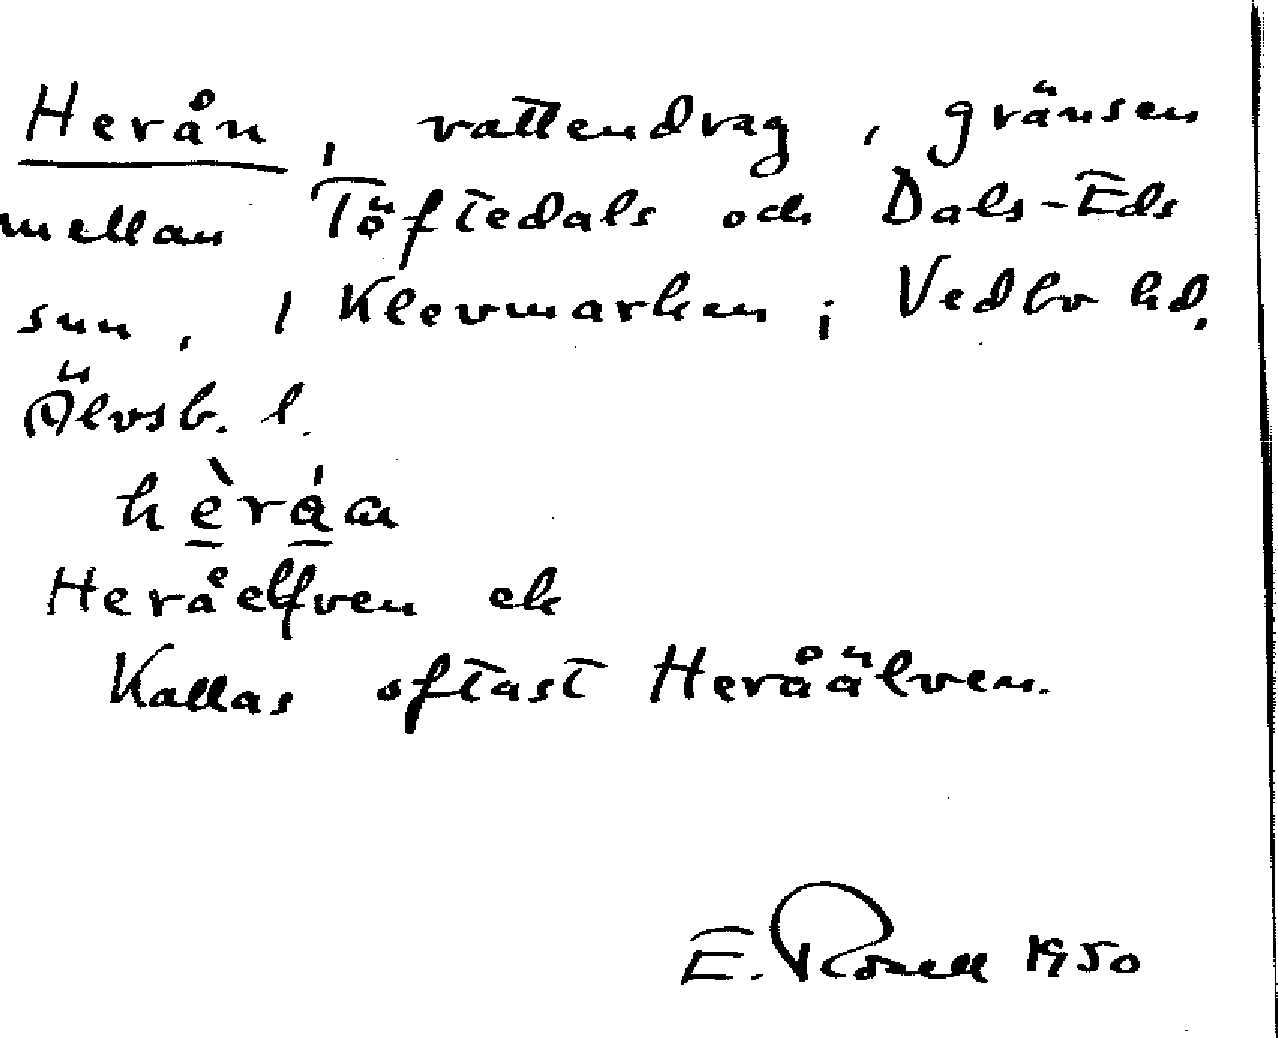 Herån, vattendrag, gränsen
mellan Töftedals och Dals-Eds
snn, i Klevmarken i Vedbo hd,
Älvsb. l.
hèråa
Heråelfven ek
Kallas oftast Heråälven.
E. Rosell 1950